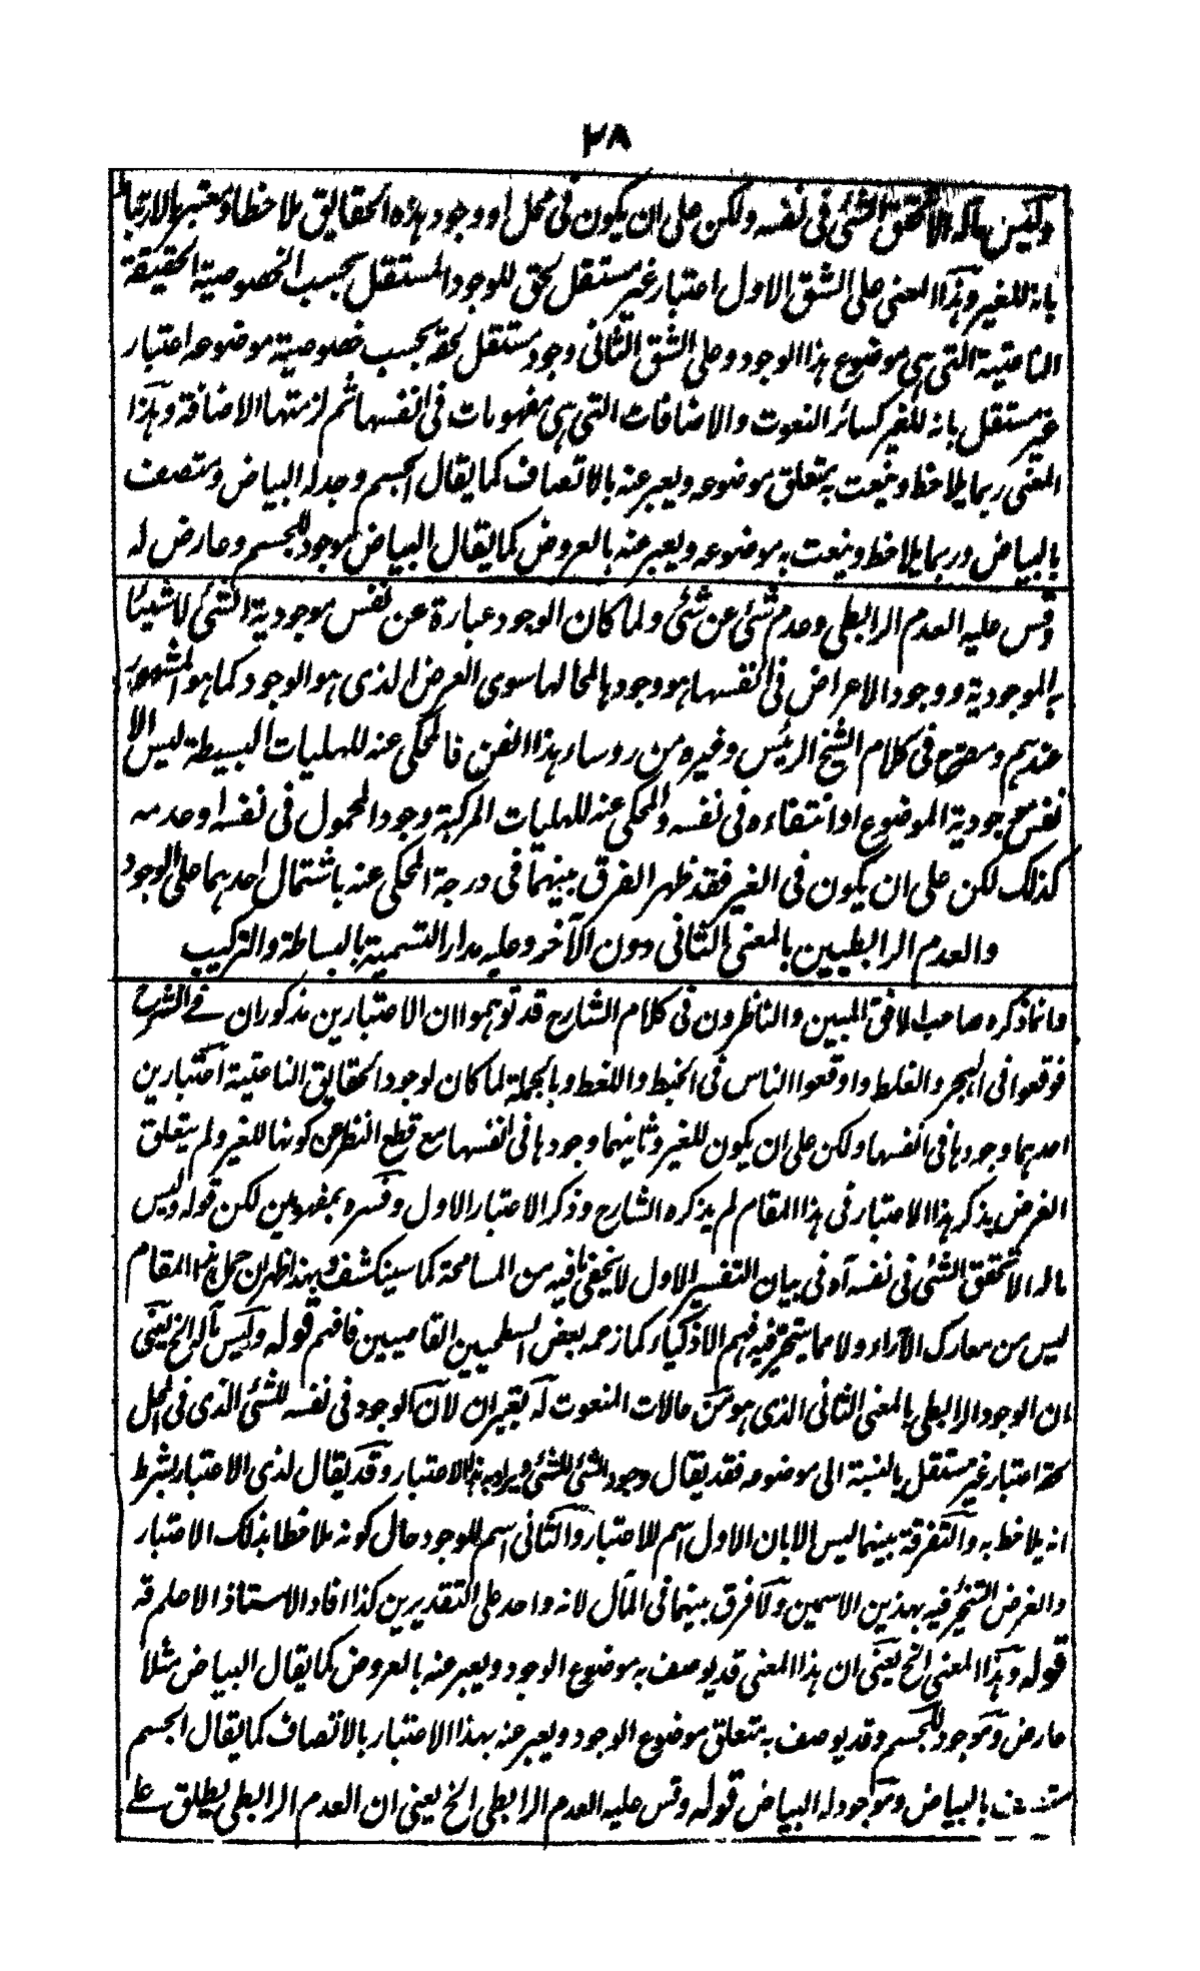 ٢٨
وليس مآله الا تحقق الشئ فى نفسه ولكن على ان يكون فى محل او وجود هذه الحقائق ملاحظا ومعتبرا بالارتباط
بانه للغير وهذا المعنى على الشق الاول اعتبار غير مستقل لحق للوجود المستقل بحسب الخصوصية الحقيقة
الناعتية التى هى موضوع هذا الوجود وعلى الشق الثانى وجود مستقل لحقه بحسب خصوصية موضوعه اعتبار
غير مستقل بانه للغير كسائر النعوت والاضافات التى هى مفهومات فى انفسها ثم لزمتها الاضافة وهذا
المعنى ربما يلاحظ وينعت به متعلق موضوعه ويعبر عنه بالاتصاف كما يقال الجسم وجد له البياض ومتصف
بالبياض وربما يلاحظ وينعت به موضوعه ويعبر عنه بالعروض كما يقال البياض موجود للجسم وعارض له
وقس عليه العدم الرابطى وعدم شئ عن شئ ولما كان الوجود عبارة عن نفس موجودية الشئ لا شيئا
به الموجودية ووجود الاعراض فى انفسها هو وجودها لمحالها سوى العرض الذى هو الوجود كما هو المشهور
عندهم ومصرح فى كلام الشيخ الرئيس وغيره من روساء هذا الفن فالمحكى عنه للهليات البسيطة ليس الا
نفس موجودية الموضوع او انتفاءه فى نفسه والمحكى عنه للهليات المركبة وجود المحمول فى نفسه او عدمه
كذلك لكن على ان يكون فى الغير فقد ظهر الفرق بينهما فى درجة المحكى عنه باشتمال احدهما على الوجود
والعدم الرابطيين بالمعنى الثانى دون الآخر وعليه مدار التسمية بالبساطة والتركيب
وانما ذكره صاحب الافق المبين والناظرون فى كلام الشارح قد توهموا ان الاعتبارين مذكوران فى الشرح
فوقعوا فى الهجر والغلط واوقعوا الناس فى الخبط واللغط وبالجملة لما كان لوجود الحقائق الناعتية اعتبارين
احدهما وجودها فى انفسها ولكن على ان يكون للغير وثانيهما وجودها فى انفسها مع قطع النظر عن كونها للغير ولم يتعلق
الغرض بذكر هذا الاعتبار فى هذا المقام لم يذكره الشارح وذكر الاعتبار الاول وفسره بمفهومين لكن قوله وليس
ماله الا تحقق الشئ فى نفسه آه فى بيان التفسير الاول لا يخفى ما فيه من المسامحة كما سينكشف وبهذا ظهر ان حل هذا المقام
ليس من معارك الآراء ولا مما يتحير فيه فهم الاذكياء كما زعمه بعض السطحيين القاصيين فافهم قوله وليس مآله الخ يعنى
ان الوجود الرابطى بالمعنى الثانى الذى هو من حالات المنعوت له تعبيران لان الوجود فى نفسه للشئ الذى فى المحل
لحقه اعتبار غير مستقل بالنسبة الى موضوعه فقد يقال وجود الشئ للشئ ويراد به هذا الاعتبار وقد يقال لذى الاعتبار بشرط
انه يلاحظ به والتفرقة بينهما ليس الا بان الاول اسم للاعتبار والثانى اسم للوجود حال كونه ملاحظا بذلك الاعتبار
والغرض التخير فيه بهذين الاسمين ولا فرق بينهما فى المآل لانه واحد على التقديرين كذا افاد الاستاذ الاعلم قه
قوله وهذا المعنى الخ يعنى ان هذا المعنى قد يوصف به موضوع الوجود ويعبر عنه بالعروض كما يقال البياض مثلا
عارض وموجود للجسم وقد يوصف به متعلق موضوع الوجود ويعبر عنه بهذا الاعتبار بالاتصاف كما يقال الجسم
متصف بالبياض وموجود له البياض قوله وقس عليه العدم الرابطى الخ يعنى ان العدم الرابطى يطلق على